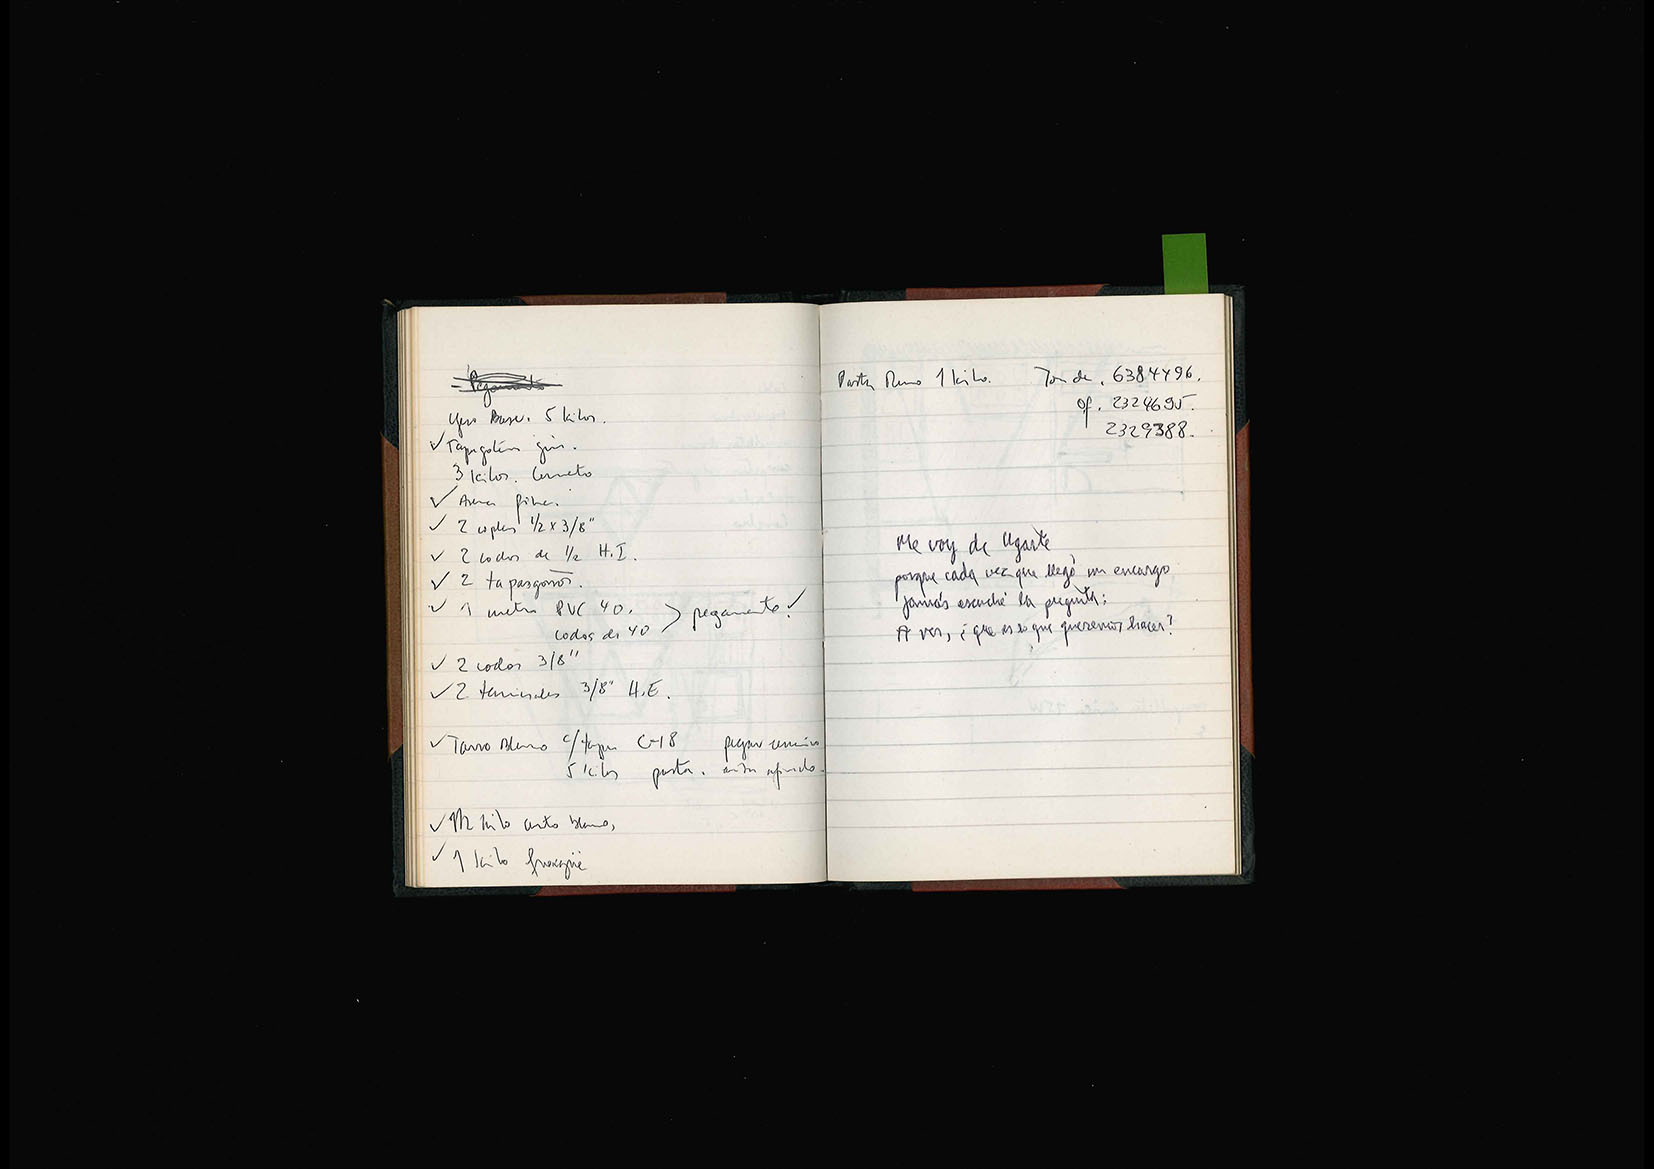 Pegamento
Yeso Base. 5 kilos.
✓ Tapagoteras gris.
3 kilos. Cemento
✓ Arena fina.
✓ 2 coplas 1/2 x 3/8"
✓ 2 codos de 1/2 H.I.
✓ 2 tapagorros.
✓ 1 metro PVC 40.
codos de 40 > pegamento ✓
✓ 2 codos 3/8"
✓ 2 terminales 3/8" H.E.
✓ Tarro Blanco c/tapa C-18 pegar
5 kilos pasta.
✓ 1/2 kilo blanco,
✓ 1 kilo fragüe
Pasta Muro 1 kilo. 6384496.
of. 2324695.
2329388.
Me voy de Ugarte
porque cada vez que llegó un encargo
jamás escuché la pregunta:
A ver, ¿qué es lo que queremos hacer?